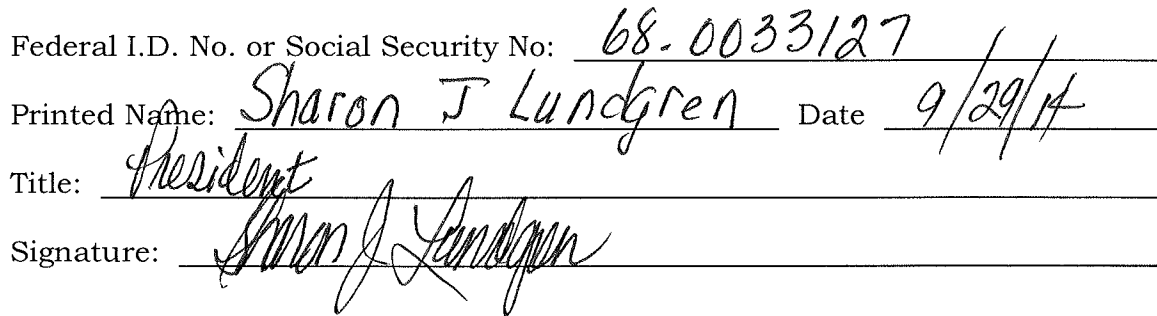 Federal I.D. No. or Social Security No: 68-0033127
Printed Name: Sharon J Lundgren Date 9/29/14
Title: President
Signature: Sharon J Lundgren